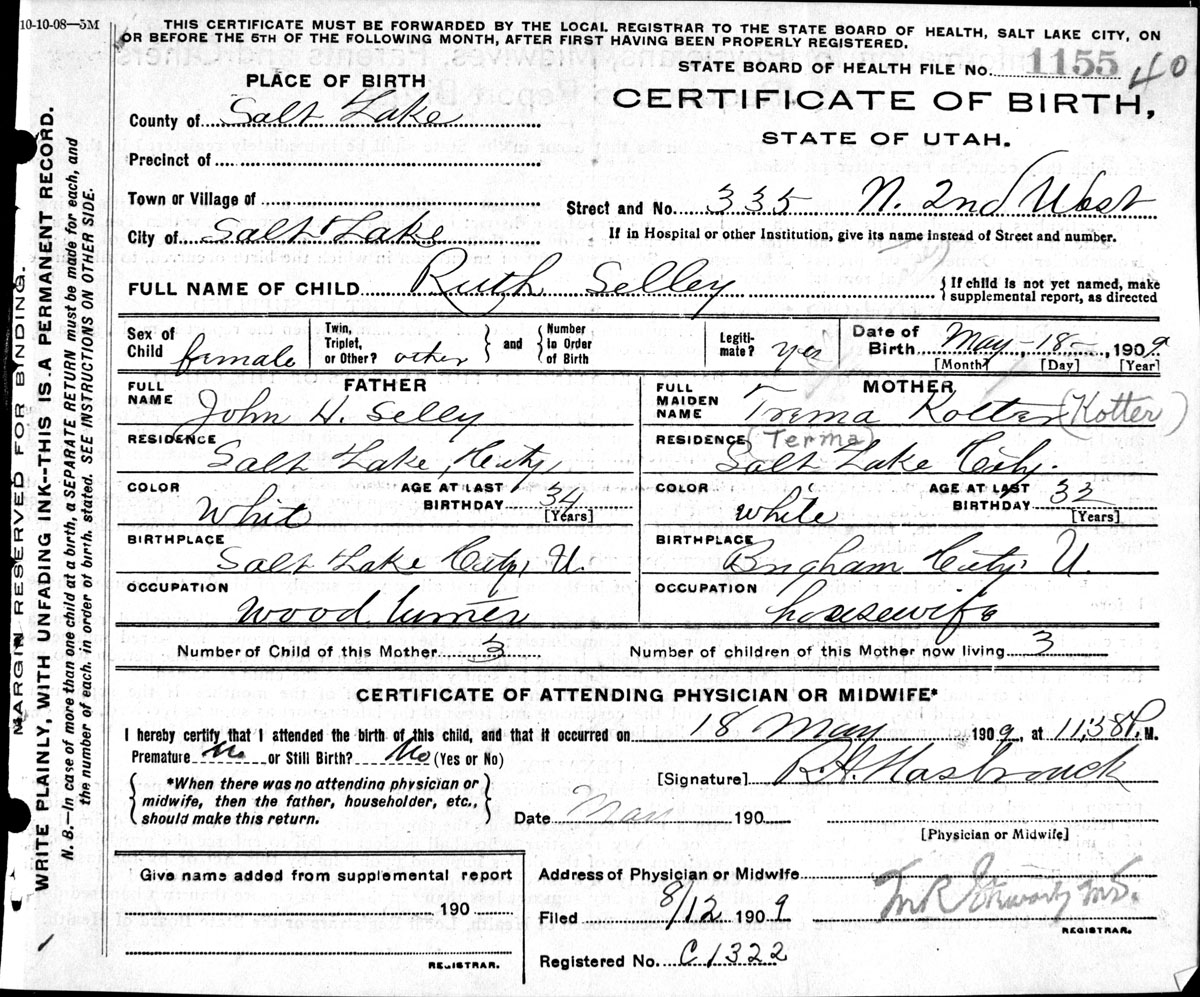 10-10-08—5M
THIS CERTIFICATE MUST BE FORWARDED BY THE LOCAL REGISTRAR TO THE STATE BOARD OF HEALTH, SALT LAKE CITY, ON
OR BEFORE THE 5TH OF THE FOLLOWING MONTH, AFTER FIRST HAVING BEEN PROPERLY REGISTERED.
MARGIN RESERVED FOR BINDING.
WRITE PLAINLY, WITH UNFADING INK--THIS IS A PERMANENT RECORD.
N. B.—In case of more than one child at a birth, a SEPARATE RETURN must be made for each, and
the number of each, in order of birth, stated. SEE INSTRUCTIONS ON OTHER SIDE.
PLACE OF BIRTH
STATE BOARD OF HEALTH FILE No. 1155 40
CERTIFICATE OF BIRTH,
STATE OF UTAH.
County of Salt Lake
Precinct of
Town or Village of
Street and No. 335 N. 2nd West
City of Salt Lake
If in Hospital or other Institution, give its name instead of Street and number.
FULL NAME OF CHILD Ruth Selley
{ If child is not yet named, make
supplemental report, as directed
Sex of Child female
Twin, Triplet, or Other? other } and { Number in Order of Birth
Legiti- mate? yes
Date of Birth May - 18 - , 1909
[Month] [Day] [Year]
FATHER
FULL NAME John H. Selly
RESIDENCE Salt Lake City
COLOR Whit
AGE AT LAST BIRTHDAY 34 [Years]
BIRTHPLACE Salt Lake City, U.
OCCUPATION Wood turner
MOTHER
FULL MAIDEN NAME Trema Kotter (Kotter)
(Terma)
RESIDENCE Salt Lake City.
COLOR white
AGE AT LAST BIRTHDAY 32 [Years]
BIRTHPLACE Brigham City, U.
OCCUPATION housewife
Number of Child of this Mother 3
Number of children of this Mother now living 3
CERTIFICATE OF ATTENDING PHYSICIAN OR MIDWIFE*
I hereby certify that I attended the birth of this child, and that it occurred on 18 May 1909, at 11:38 P. M.
Premature no or Still Birth? No (Yes or No)
{ *When there was no attending physician or
midwife, then the father, householder, etc.,
should make this return. }
[Signature] R.H. Hasbrouck
Date May 190
[Physician or Midwife]
Give name added from supplemental report
190
REGISTRAR.
Address of Physician or Midwife
Filed 8/12 1909
REGISTRAR.
Registered No. C1322